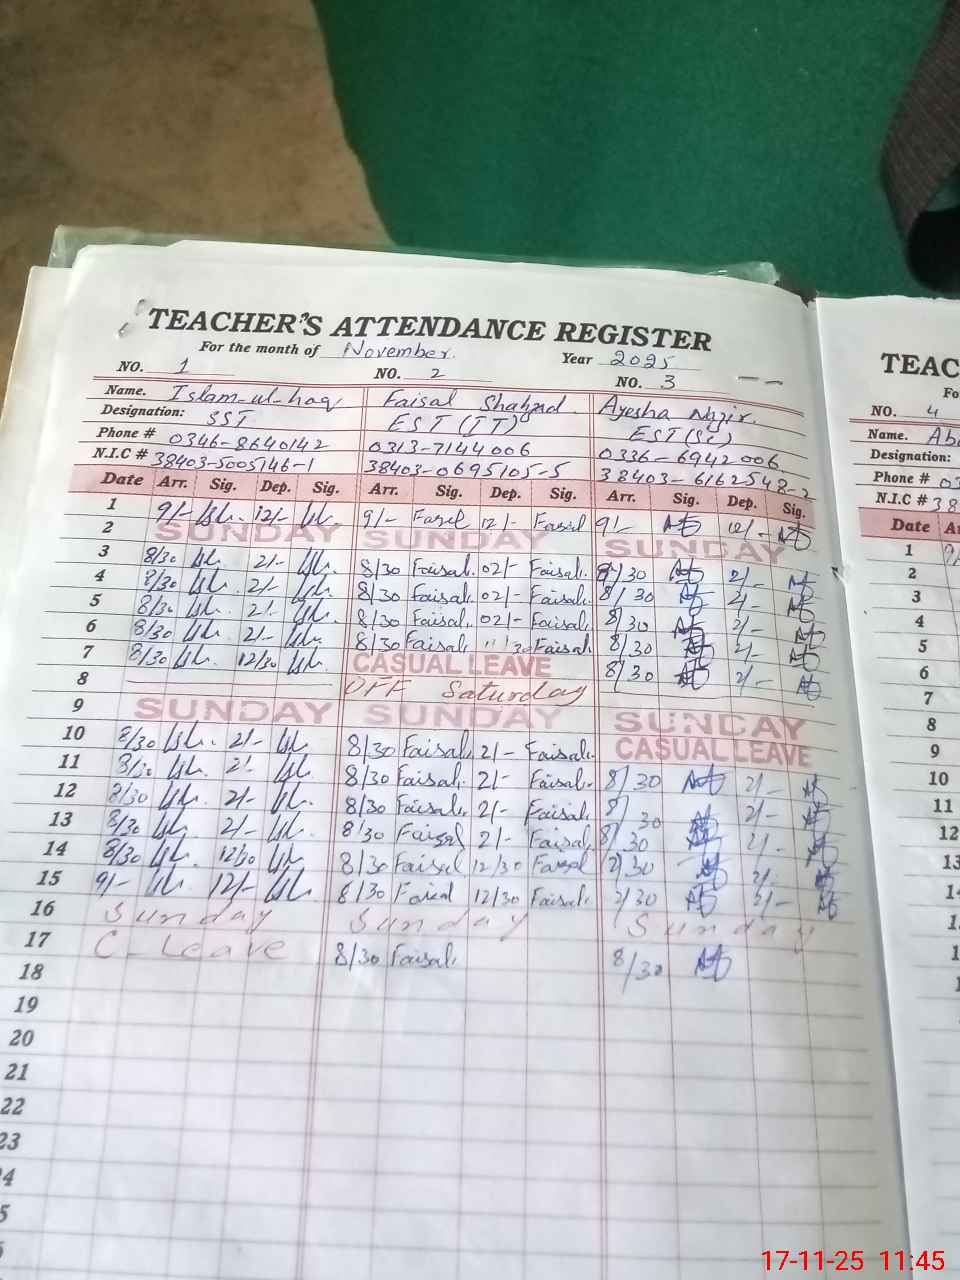 TEACHER'S ATTENDANCE REGISTER
For the month of November. Year 2025
NO. 1 NO. 2 NO. 3
Name. Islam-ul-haq Faisal Shahzad. Ayesha Nazir.
Designation: SST EST (IT) EST (Sc)
Phone # 0346-8640142 0313-7144006 0336-6942006
N.I.C # 38403-5005146-1 38403-0695105-5 38403-6162548-2
Date Arr. Sig. Dep. Sig. Arr. Sig. Dep. Sig. Arr. Sig. Dep. Sig.
1 9/- 12/- 9/- Faisal 12/- Faisal 9/- 12/-
2 SUNDAY SUNDAY SUNDAY
3 8/30 2/- 8/30 Faisal. 02/- Faisal. 8/30 2/-
4 8/30 2/- 8/30 Faisal. 02/- Faisal. 8/30 2/-
5 8/30 2/- 8/30 Faisal. 02/- Faisal. 8/30 2/-
6 8/30 2/- 8/30 Faisal Faisal. 8/30 2/-
7 8/30 12/30 CASUAL LEAVE 8/30 2/-
8 OFF Saturday
9 SUNDAY SUNDAY SUNDAY
10 8/30 2/- 8/30 Faisal. 2/- Faisal. CASUAL LEAVE
11 8/30 2/- 8/30 Faisal. 2/- Faisal. 8/30 2/-
12 8/30 2/- 8/30 Faisal. 2/- Faisal. 8/30 2/-
13 8/30 2/- 8/30 Faisal 2/- Faisal. 8/30 2/-
14 8/30 12/30 8/30 Faisal 12/30 Faisal 2/-
15 9/- 12/- 8/30 Faisal 12/30 Faisal. 2/-
16 Sunday Sunday Sunday
17 C-Leave 8/30 Faisal. 8/30
18
19
20
21
22
23
TEAC
Fo
NO. 4
Name. Ab
Designation:
Phone # 03
N.I.C # 38
Date
1
2
3
4
5
6
7
8
9
10
11
12
13
14
17-11-25 11:45